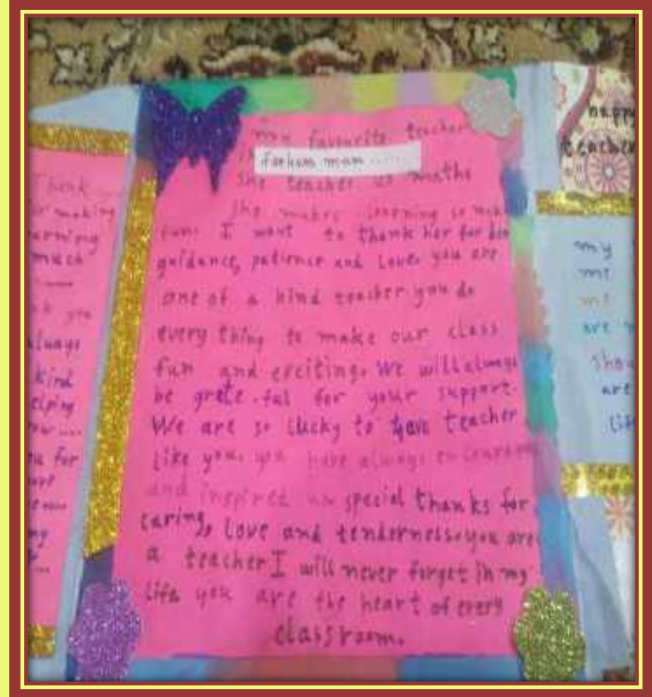 my favourite teacher
is
farhana mam ......
she teacher us maths
she makes learning so much
fun. I want to thank her for her
guidance, patience and Love. you are
one of a kind teacher you do
every thing to make our class
fun and exciting. We will always
be grete.ful for your support.
We are so lucky to have teacher
like you. you have always encouraged
and inspired us special thanks for
caring, Love and tenderness. you are
a teacher I will never forget in my
life you are the heart of every
classroom.
Thank
making
learning
much
you
always
kind
helping
for
happy
teacher
my
me
me
are
shou
are
life